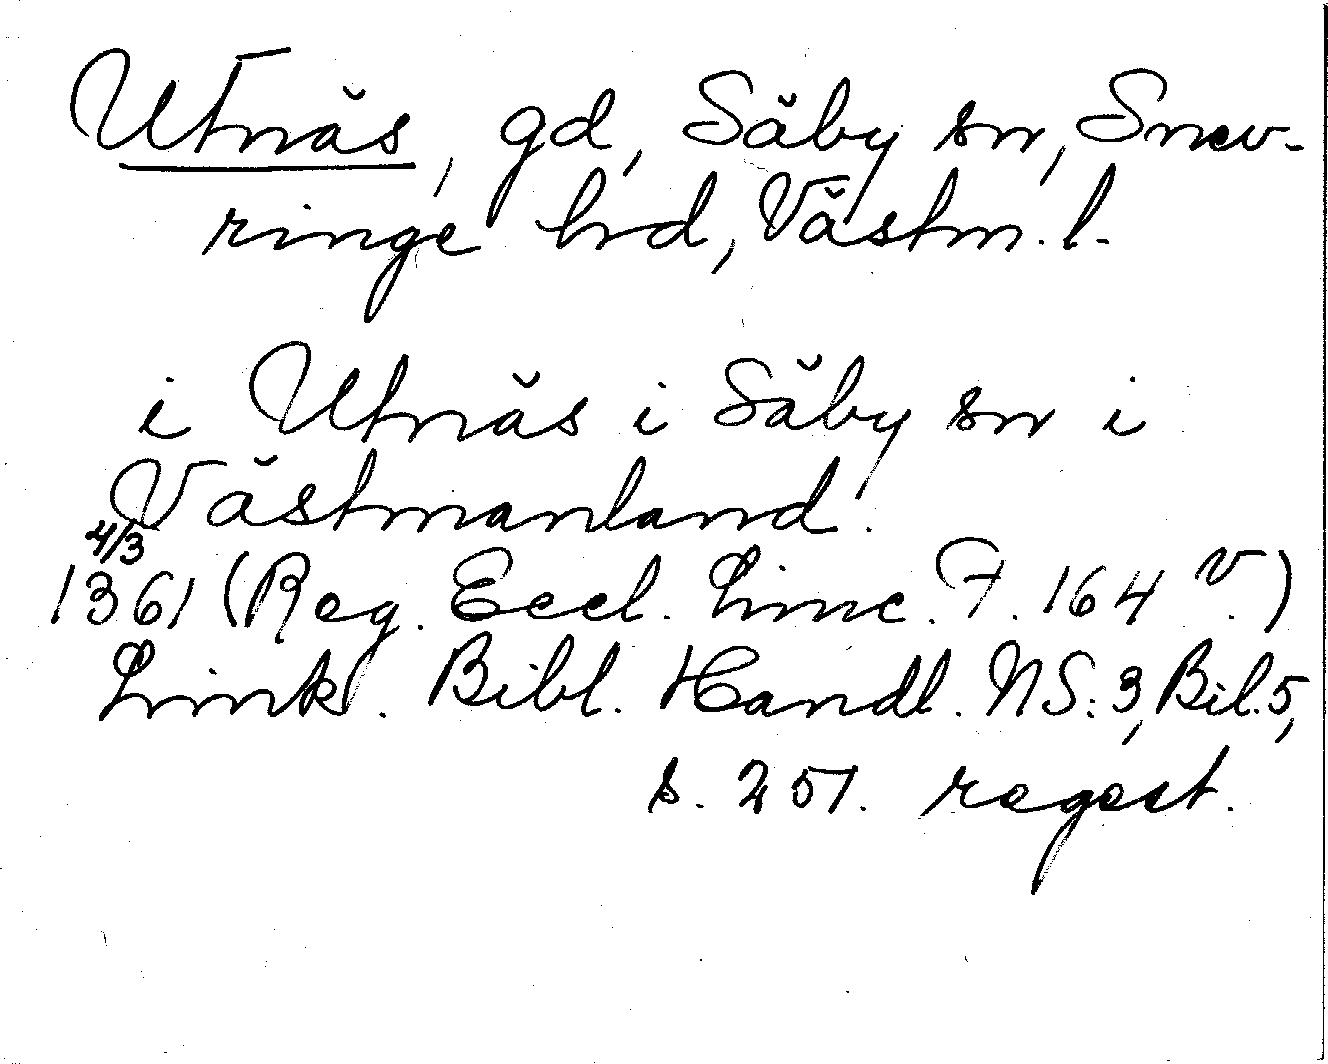 Utnäs, gd, Säby sn, Snev-
ringe hd, Västm. l.
i Utnäs i Säby sn i
Västmanland.
4/3
1361 (Reg. Eccl. Linc. F. 164 v.)
Link. Bibl. Handl. NS: 3, Bil. 5,
s. 251. regest.